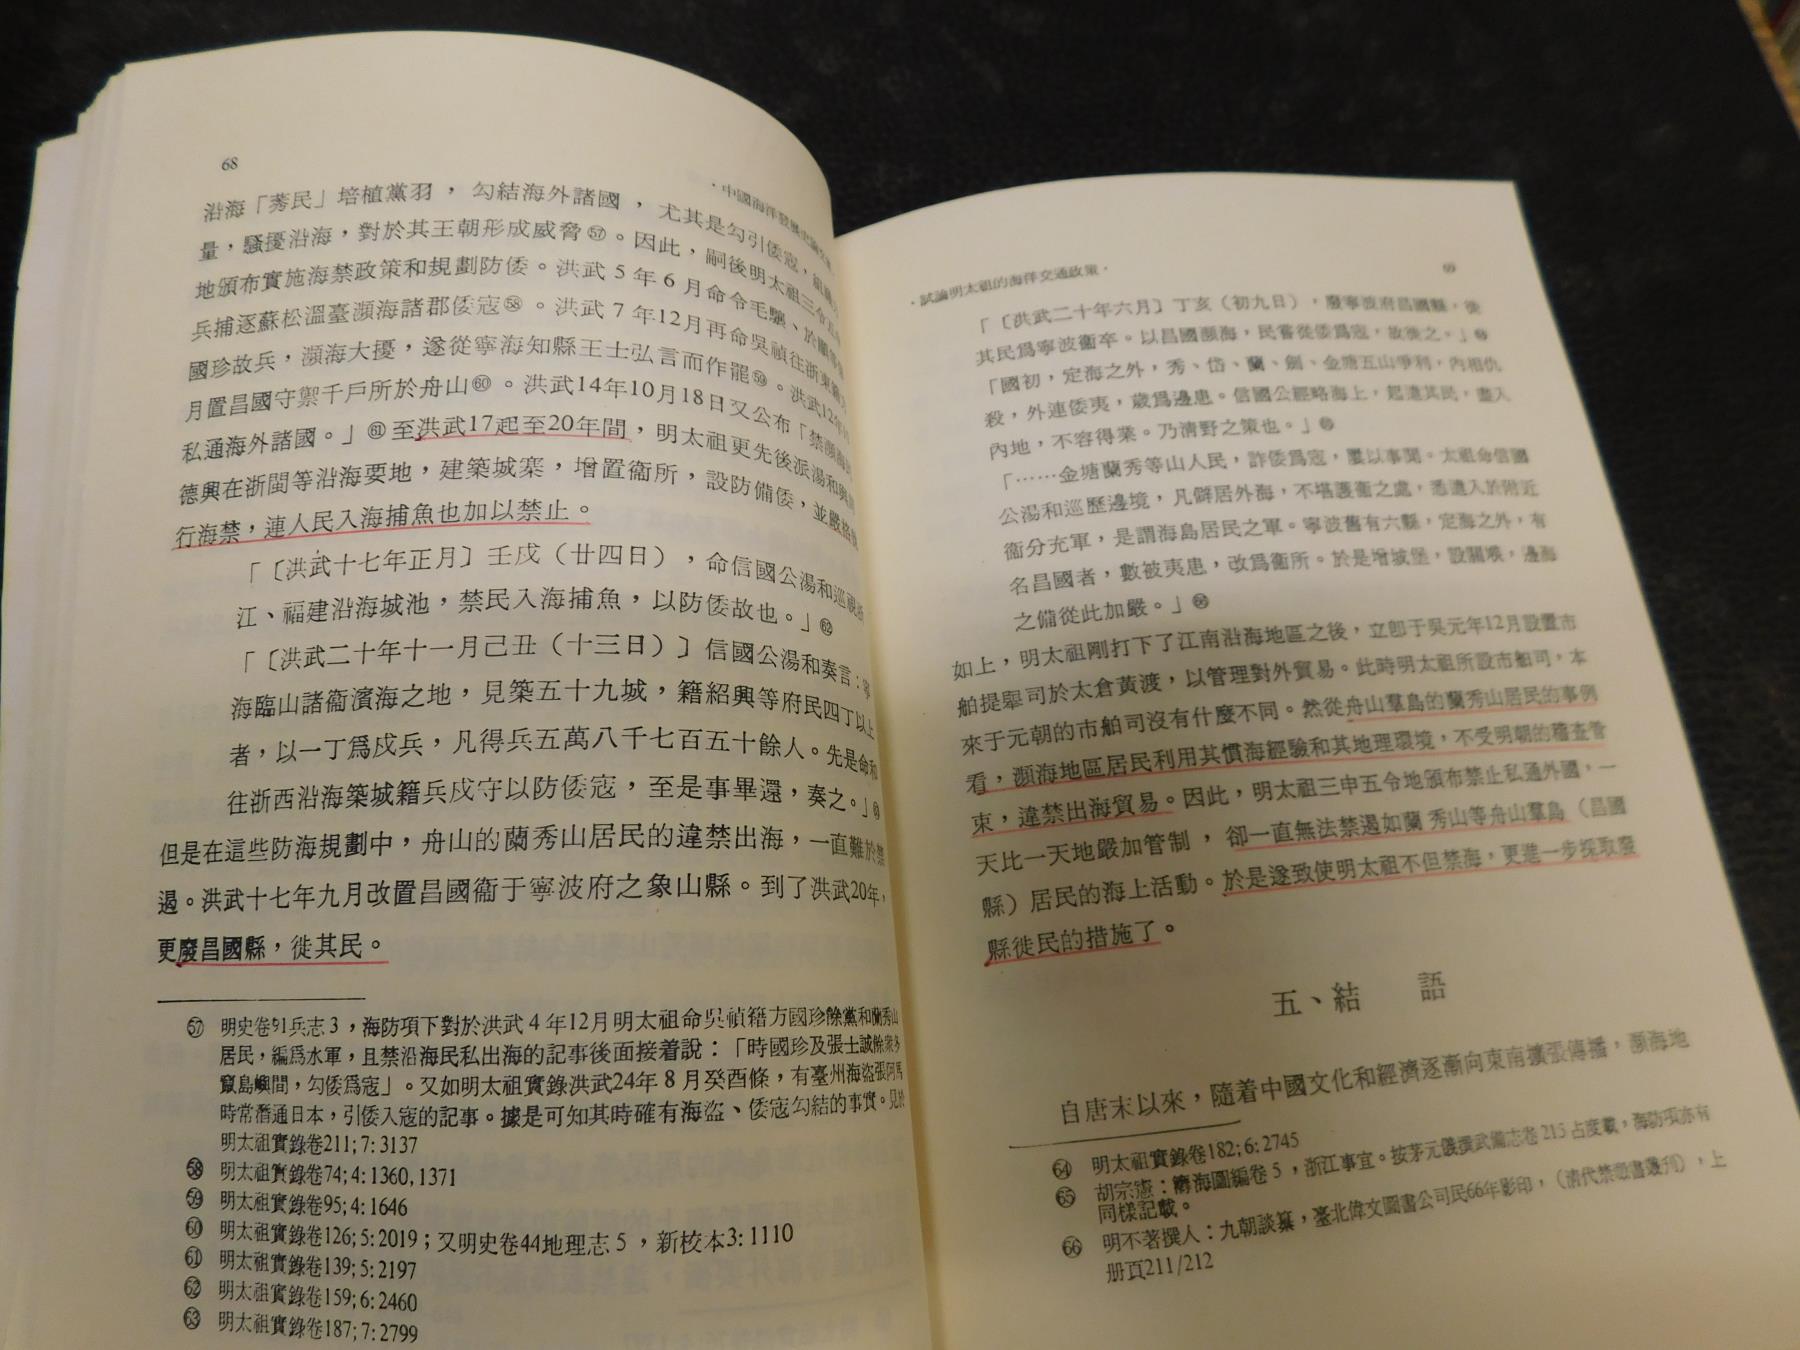 68
·中國海洋發展史論文集·
沿海「莠民」培植黨羽，勾結海外諸國，尤其是勾引倭寇，組織力
量，騷擾沿海，對於其王朝形成威脅57。因此，嗣後明太祖三令五申
地頒布實施海禁政策和規劃防倭。洪武5年6月命令毛驤、於顯等
兵捕逐蘇松溫臺瀕海諸郡倭寇58。洪武7年12月再命吳禎往浙東籍方
國珍故兵，瀕海大擾，遂從寧海知縣王士弘言而作罷59。洪武12年
月置昌國守禦千戶所於舟山60。洪武14年10月18日又公布「禁瀕海民
私通海外諸國。」61至洪武17起至20年間，明太祖更先後派湯和與周
德興在浙閩等沿海要地，建築城寨，增置衞所，設防備倭，並嚴格執
行海禁，連人民入海捕魚也加以禁止。
「〔洪武十七年正月〕壬戌（廿四日），命信國公湯和巡視浙
江、福建沿海城池，禁民入海捕魚，以防倭故也。」62
「〔洪武二十年十一月己丑（十三日）〕信國公湯和奏言：寧
海臨山諸衞濱海之地，見築五十九城，籍紹興等府民四丁以上
者，以一丁爲戍兵，凡得兵五萬八千七百五十餘人。先是命和
往浙西沿海築城籍兵戍守以防倭寇，至是事畢還，奏之。」63
但是在這些防海規劃中，舟山的蘭秀山居民的違禁出海，一直難於禁
遏。洪武十七年九月改置昌國衞于寧波府之象山縣。到了洪武20年，
更廢昌國縣，徙其民。
57 明史卷91兵志3，海防項下對於洪武4年12月明太祖命吳禎籍方國珍餘黨和蘭秀山
居民，編爲水軍，且禁沿海民私出海的記事後面接着說：「時國珍及張士誠餘衆多
竄島嶼間，勾倭爲寇」。又如明太祖實錄洪武24年8月癸酉條，有臺州海盜張阿馬
時常潛通日本，引倭入寇的記事。據是可知其時確有海盜、倭寇勾結的事實。見於
明太祖實錄卷211；7：3137
58 明太祖實錄卷74；4：1360，1371
59 明太祖實錄卷95；4：1646
60 明太祖實錄卷126；5：2019；又明史卷44地理志5，新校本3：1110
61 明太祖實錄卷139；5：2197
62 明太祖實錄卷159；6：2460
63 明太祖實錄卷187；7：2799
·試論明太祖的海洋交通政策·
69
「〔洪武二十年六月〕丁亥（初九日），廢寧波府昌國縣，徙
其民爲寧波衞卒。以昌國瀕海，民嘗從倭爲寇，故徙之。」64
「國初，定海之外，秀、岱、蘭、劍、金塘五山爭利，內相仇
殺，外連倭夷，歲爲邊患。信國公經略海上，起遣其民，盡入
內地，不容得業。乃清野之策也。」65
「……金塘蘭秀等山人民，詐倭爲寇，屢以事聞。太祖命信國
公湯和巡歷邊境，凡僻居外海，不堪護衞之處，悉遣入於附近
衞分充軍，是謂海島居民之軍。寧波舊有六縣，定海之外，有
名昌國者，數被夷患，改爲衞所。於是增城堡，設關隘，邊海
之備從此加嚴。」66
如上，明太祖剛打下了江南沿海地區之後，立卽于吳元年12月設置市
舶提擧司於太倉黃渡，以管理對外貿易。此時明太祖所設市舶司，本
來于元朝的市舶司沒有什麼不同。然從舟山羣島的蘭秀山居民的事例
看，瀕海地區居民利用其慣海經驗和其地理環境，不受明朝的稽查管
束，違禁出海貿易。因此，明太祖三申五令地頒布禁止私通外國，一
天比一天地嚴加管制，卻一直無法禁遏如蘭秀山等舟山羣島（昌國
縣）居民的海上活動。於是遂致使明太祖不但禁海，更進一步採取廢
縣徙民的措施了。
五、結　語
自唐末以來，隨着中國文化和經濟逐漸向東南擴張傳播，瀕海地
64 明太祖實錄卷182；6：2745
65 胡宗憲：籌海圖編卷5，浙江事宜。按茅元儀撰武備志卷215占度載，海防項亦有
同樣記載。
66 明不著撰人：九朝談纂，臺北偉文圖書公司民66年影印，（清代禁燬書叢刊），上
册頁211/212